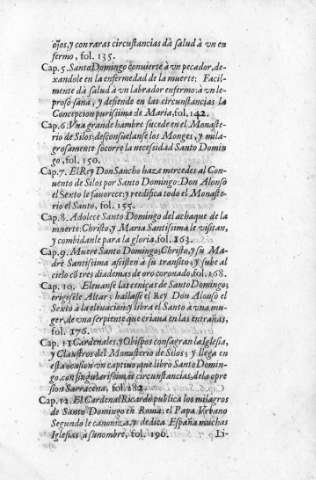 ojos, y con raras circunstancias dà salud à vn en
fermo, fol. 135.
Cap. 5. Santo Domingo conuierte à vn pecador, de-
xandole en la enfermedad de la muerte: Facil-
mente dà salud à vn labrador enfermo: à vn le-
proso sana, y defiende en las circunstancias la
Concepcion purissima de Maria, fol. 142.
Cap. 6. Vna grande hambre sucede en el Monaste-
rio de Silos: desconsuelanse los Monges, y mila-
grosamente socorre la necesidad Santo Domin
go, fol. 150.
Cap. 7. El Rey Don Sancho haze mercedes al Con-
uento de Silos por Santo Domingo: Don Alonso
el Sexto le fauorece: y reedifica todo el Monaste-
rio el Santo, fol. 155.
Cap. 8. Adolece Santo Domingo del achaque de la
muerte: Christo, y Maria Santissima le visitan,
y combidanle para la gloria, fol. 163.
Cap. 9. Muere Santo Domingo: Christo, y su Ma-
dre Santissima assisten à su transito, y sube al
cielo cõ tres diademas de oro coronado, fol. 168.
Cap. 10. Eleuanse las ceniças de Santo Domingo;
erigesele Altar; hallasse el Rey Don Alonso el
Sexto à la eleuaciõ; y libra el Santo à vna mu-
ger, de vna serpiente que criaua en las entrañas,
fol. 176.
Cap. 11. Cardenales, y Obispos consagran la Iglesia,
y Claustros del Monasterio de Silos; y llega en
esta ocasion vn captiuo que librò Santo Domin-
go, con singularissimas circunstancias, de la opre
sion Sarracena, fol. 182.
Cap. 12. El Cardenal Ricardo publica los milagros
de Santo Domingo en Roma: el Papa Vrbano
Segundo le canoniza, y dedica España muchas
Iglesias à su nombre, fol. 196.
Li-